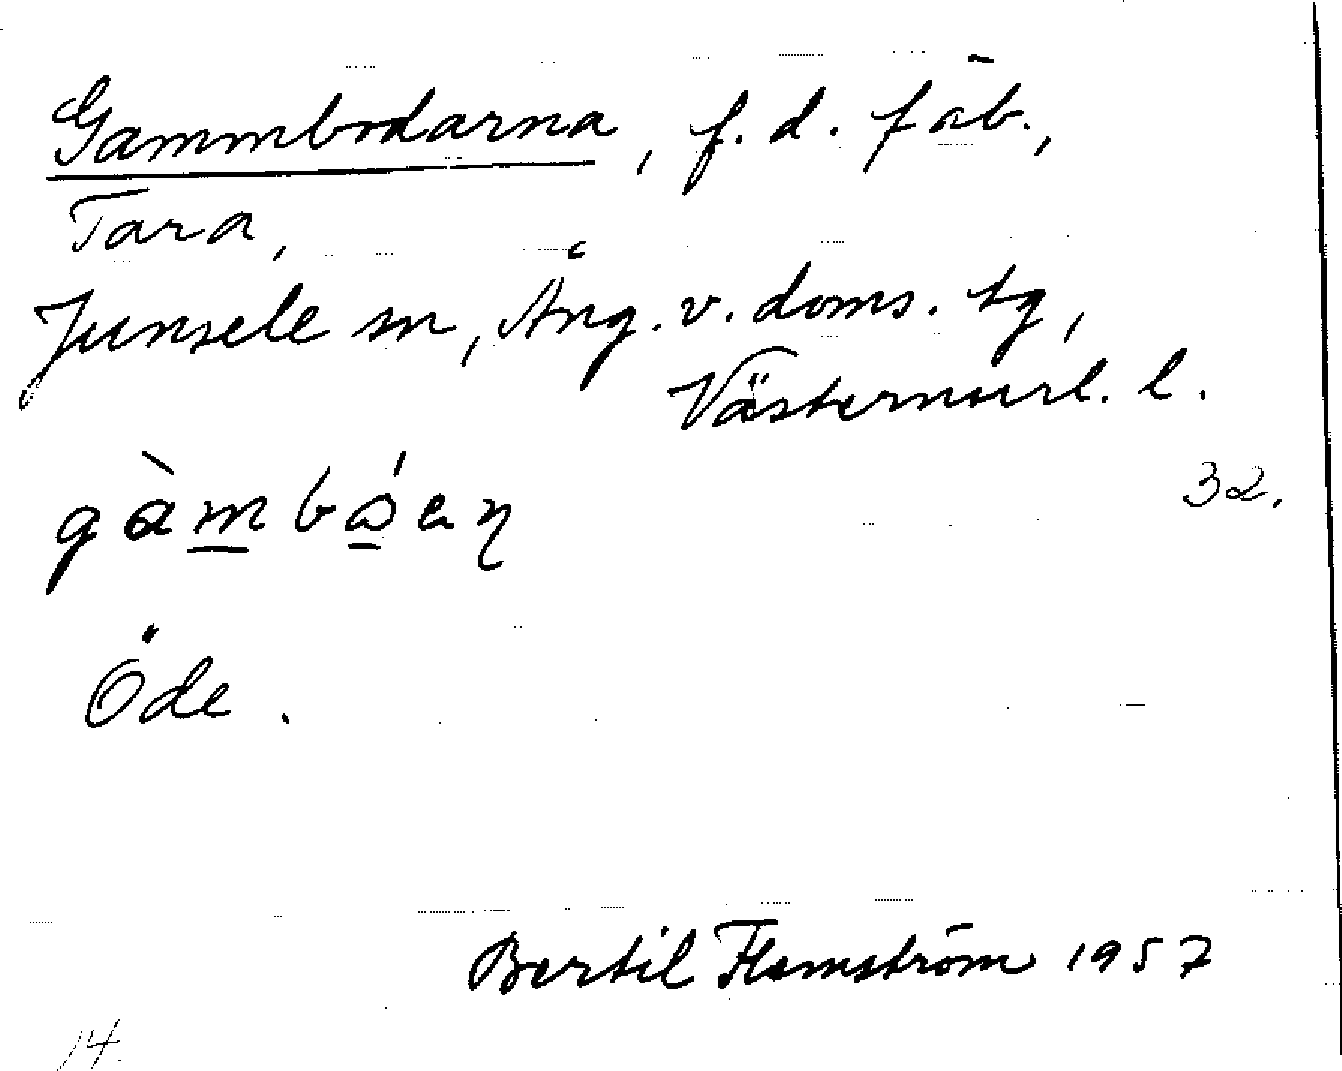 Gammbodarna, f. d. fäb.,
Tara,
Junsele sn, Ång. v. doms. tg,
Västernorrl. l.
32.
Öde.
Bertil Flemström 1957
14.